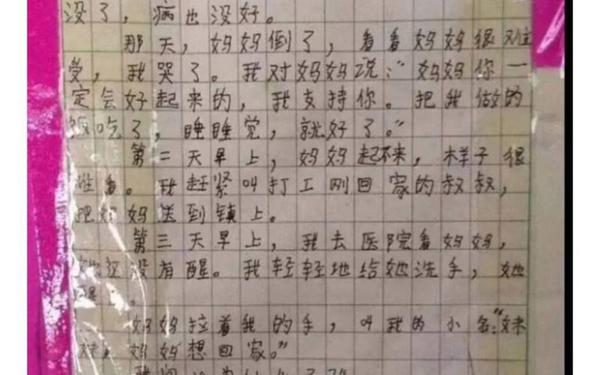 没了，病也没好。
那天，妈妈倒了，看看妈妈很难
受，我哭了。我对妈妈说：“妈妈你一
定会好起来的，我支持你。把我做的
饭吃了，睡睡觉，就好了。”
第二天早上，妈妈起不来，样子很
难看。我赶紧叫打工刚回家的叔叔，
把妈妈送到镇上。
第三天早上，我去医院看妈妈，
她还没有醒。我轻轻地给她洗手，她
醒了。
妈妈拉着我的手，叫我的小名：“妹
妹，妈妈想回家。”